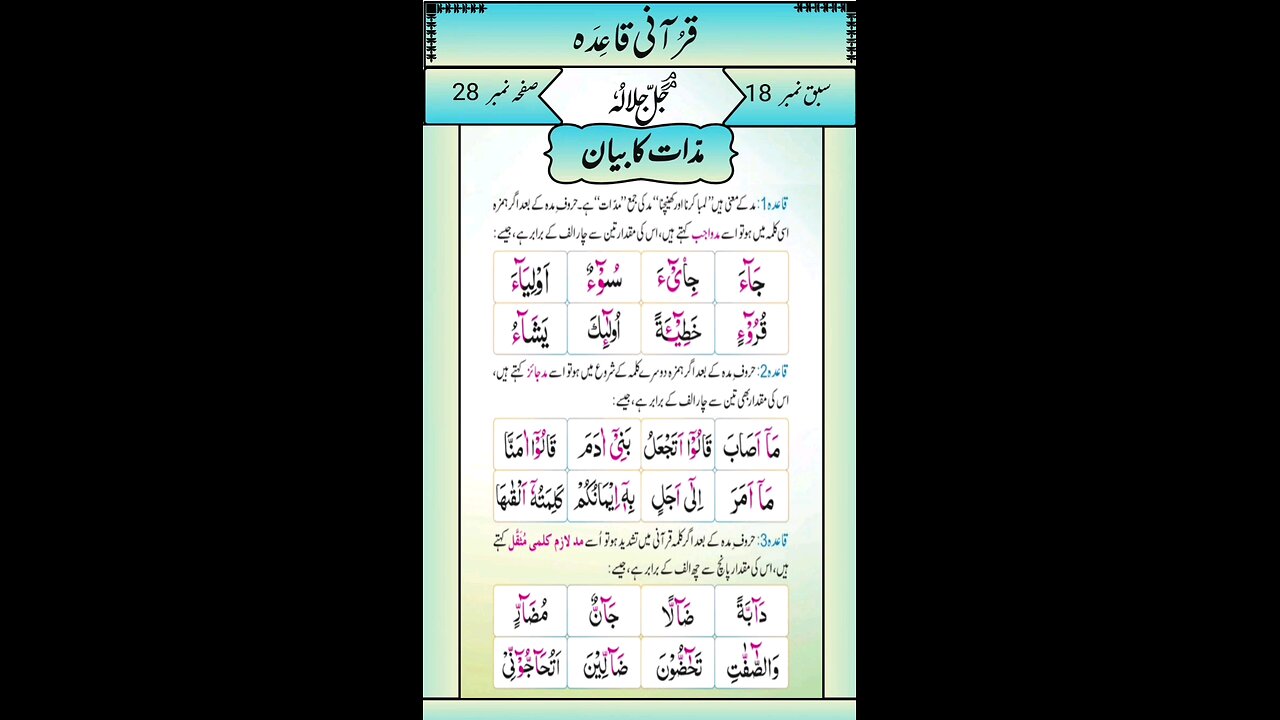 قرآنی قاعِدَہ
سبق نمبر 18
جَلَّ جَلَالُہٗ
صفحہ نمبر 28
مدّات کا بیان
قاعدہ1: مد کے معنی ہیں ”لمبا کرنا اور کھینچنا“ مد کی جمع ”مدّات“ ہے۔ حروفِ مدہ کے بعد اگر ہمزہ
اسی کلمہ میں ہو تو اسے مدواجب کہتے ہیں، اس کی مقدار تین سے چار الف کے برابر ہے، جیسے:
جَآءَ جِایْٓءَ سُوْٓءٌ اَوْلِیَآءَ
قُرُوْٓءٍ خَطِیْٓئَةً اُولٰٓئِكَ یَشَآءُ
قاعدہ2: حروفِ مدہ کے بعد اگر ہمزہ دوسرے کلمہ کے شروع میں ہو تو اسے مد جائز کہتے ہیں،
اس کی مقدار بھی تین سے چار الف کے برابر ہے، جیسے:
مَآ اَصَابَ قَالُوْٓا اَتَجْعَلُ بَنِیْٓ اٰدَمَ قَالُوْٓا اٰمَنَّا
مَآ اَمَرَ اِلٰٓی اَجَلٍ بِهٖٓ اِیْمَانُكُمْ كَلِمَتُهٗٓ اَلْقٰىهَا
قاعدہ3: حروفِ مدہ کے بعد اگر کلمہ قرآنی میں تشدید ہو تو اُسے مد لازم کلمی مُثَقَّل کہتے
ہیں، اس کی مقدار پانچ سے چھ الف کے برابر ہے، جیسے:
دَآبَّةً ضَآلًّا جَآنٌّ مُضَآرٍّ
وَالصّٰٓفّٰتِ تَحٰٓضُّوْنَ ضَآلِّیْنَ اَتُحَآجُّوْٓنِّیْ